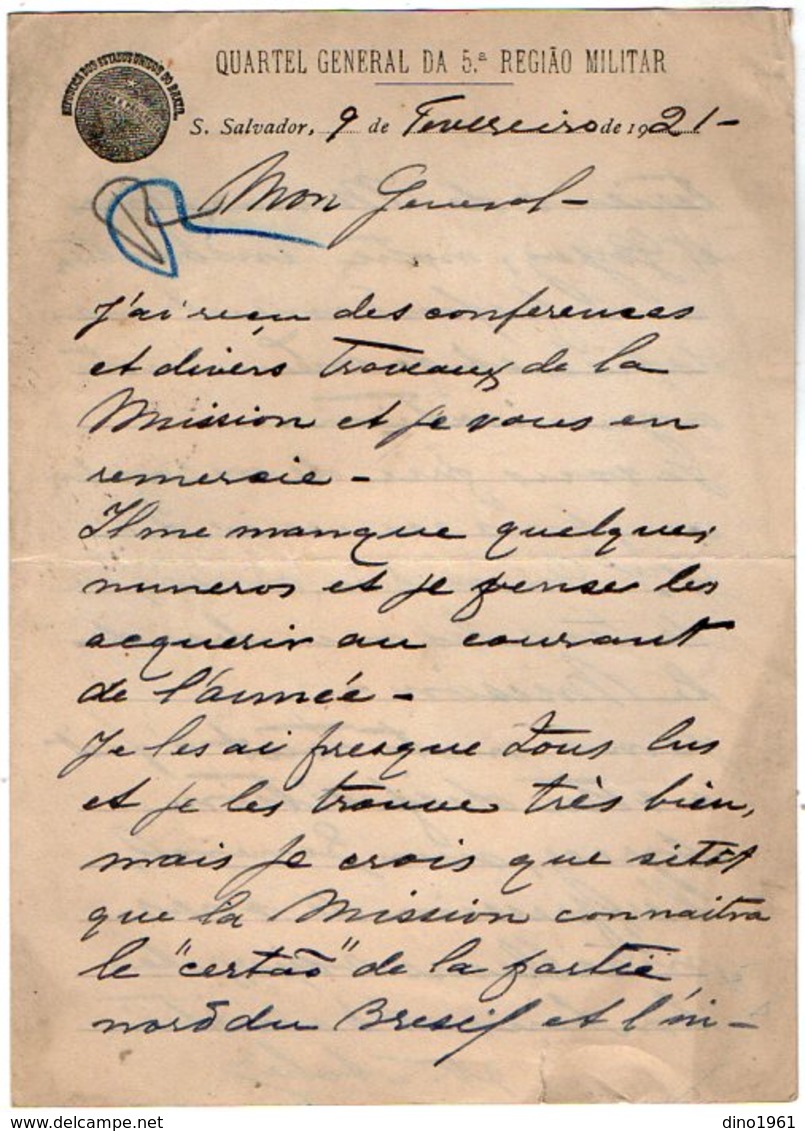 REPUBLICA DOS ESTADOS UNIDOS DO BRAZIL
QUARTEL GENERAL DA 5.ª REGIÃO MILITAR
S. Salvador, 9 de Fevereiro de 1921 -
Mon General -
J'ai reçu des conferences
et divers travaux de la
Mission et je vous en
remercie -
Il me manque quelques
numeros et je pense les
acquerir au courant
de l'année -
Je les ai presque tous lus
et je les trouve très bien,
mais je crois que sitôt
que la Mission connaitra
le "certão" de la partie
nord du Bresil et l'in-
dino1961